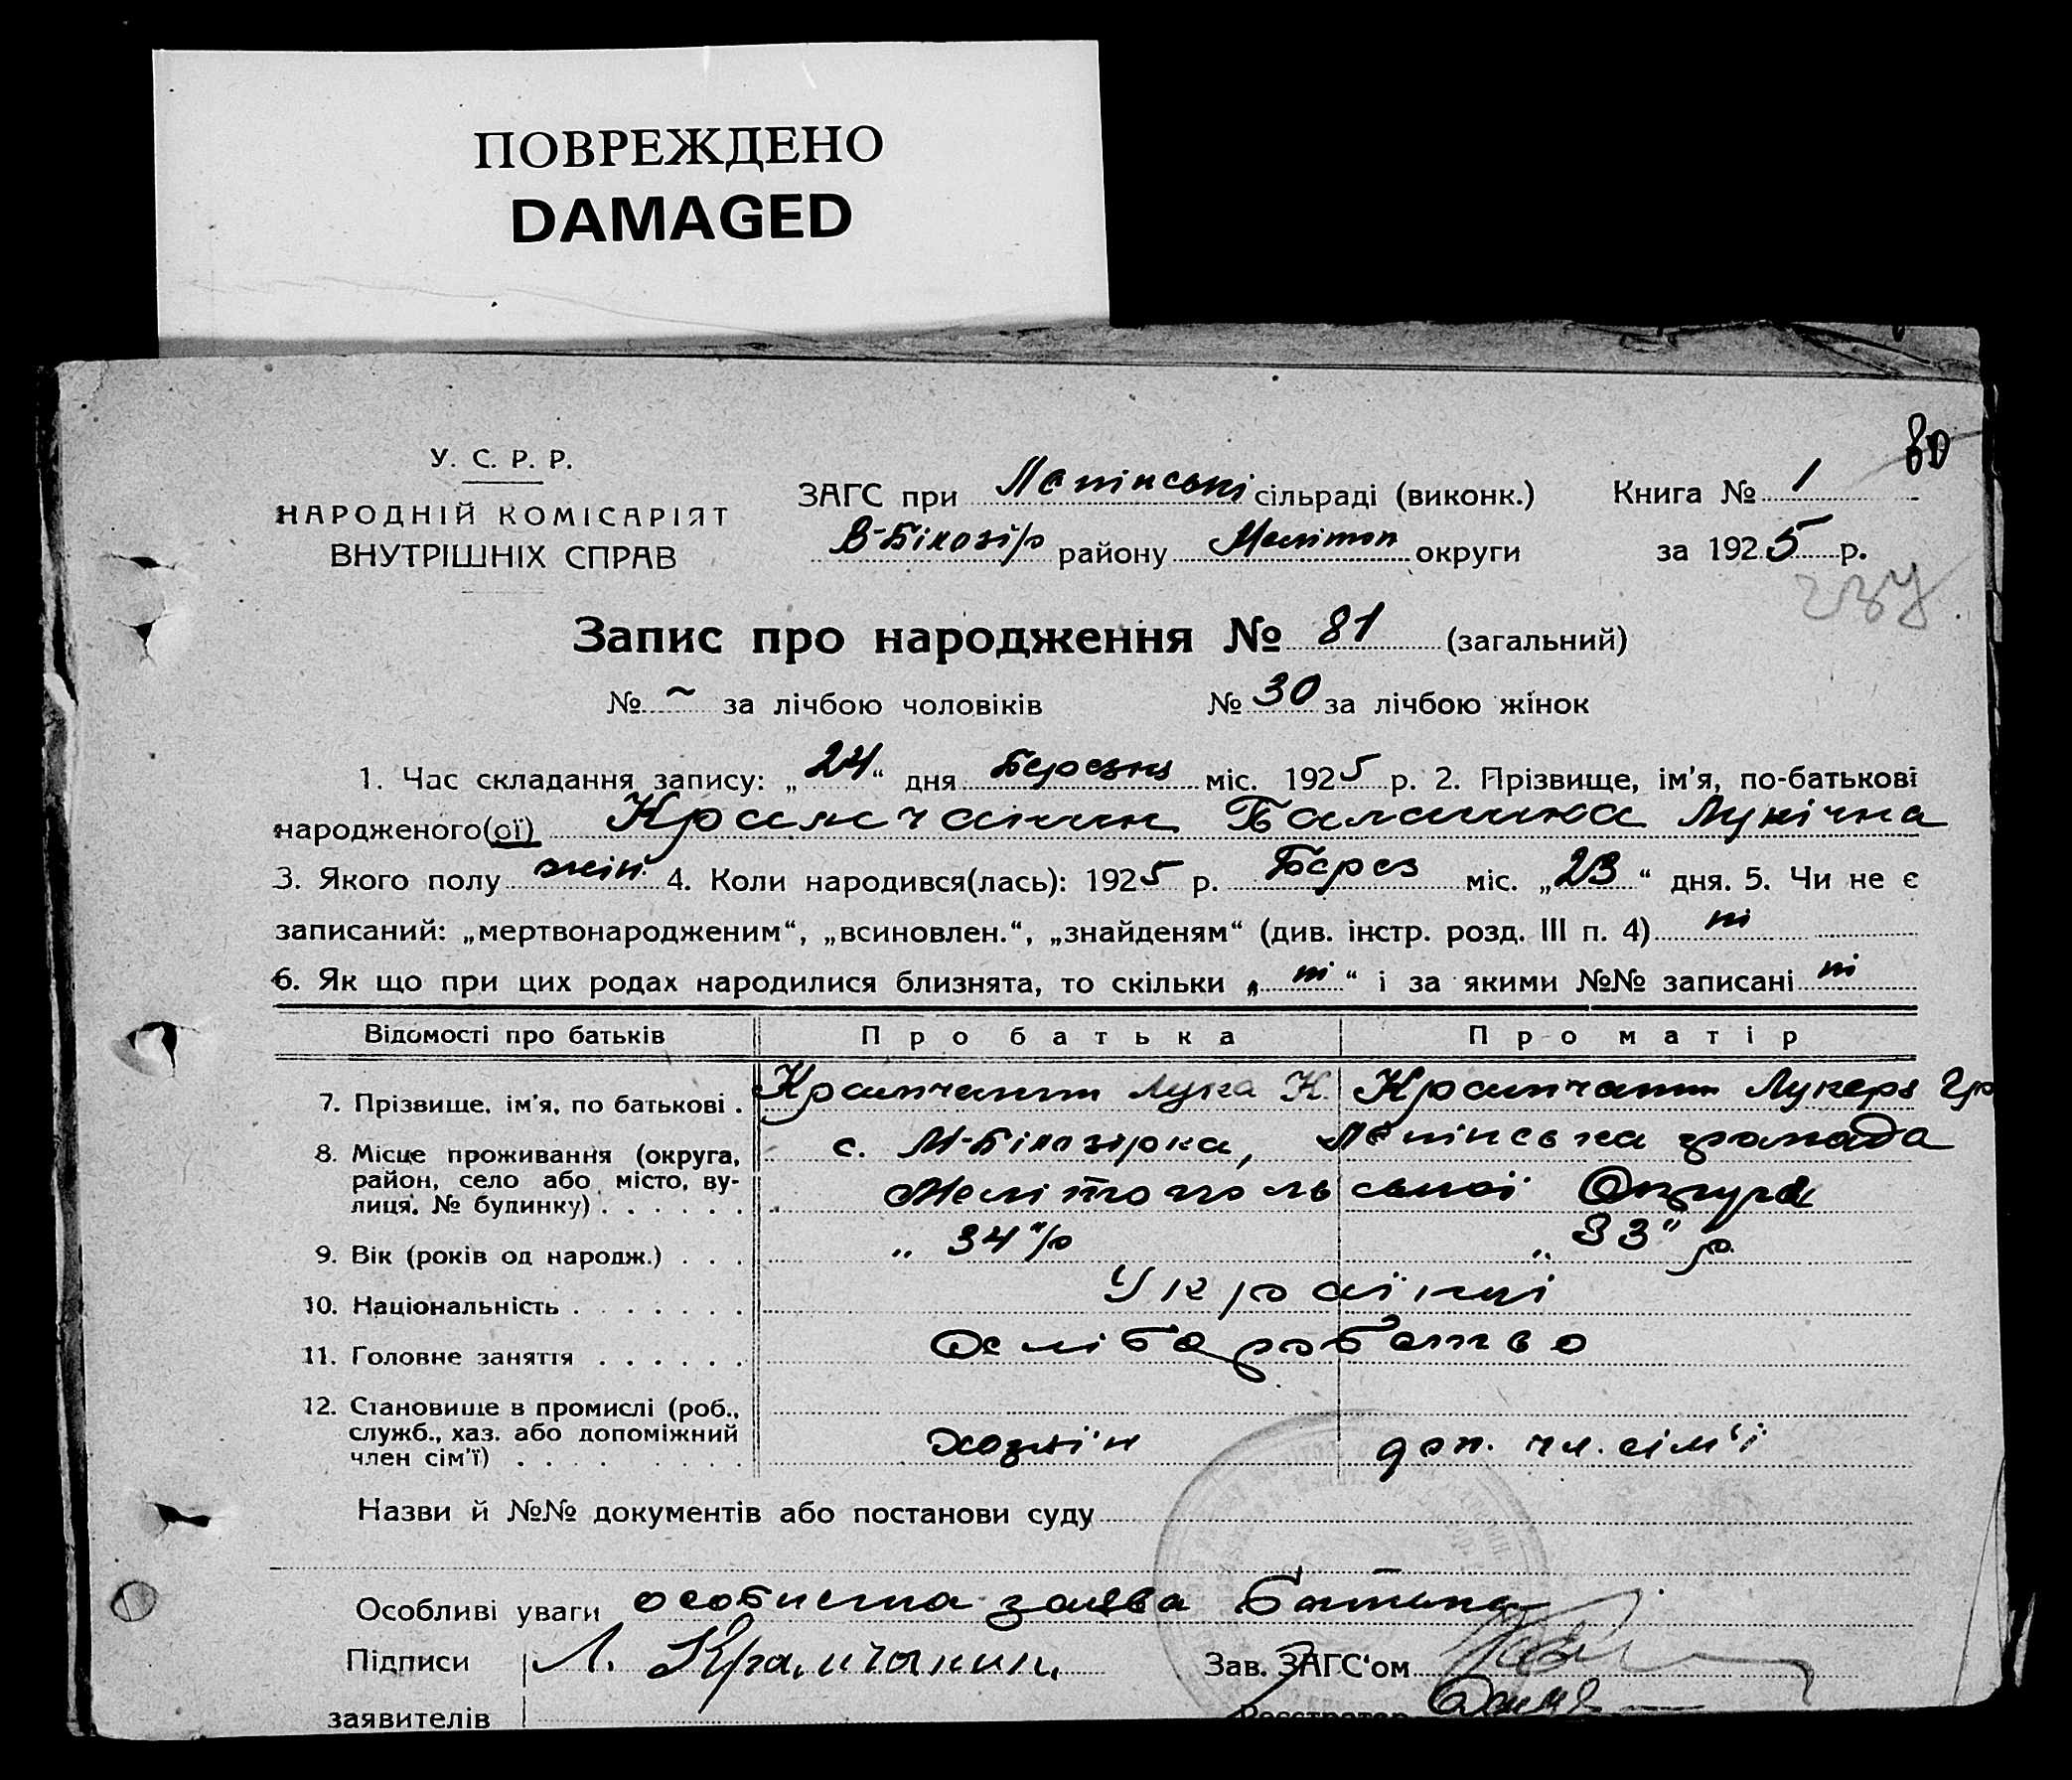 ПОВРЕЖДЕНО
DAMAGED
80
У. С. Р. Р.
НАРОДНІЙ КОМІСАРІЯТ
ВНУТРІШНІХ СПРАВ
ЗАГС при сільраді (виконк.)
В-Білозір району Меліт́оп округи
Книга № 1
за 1925 р.
Запис про народження № 81 (загальний)
№ ~ за лічбою чоловіків № 30 за лічбою жінок
1. Час складання запису: „24“ дня Березня міс. 1925 р. 2. Прізвище, ім'я, по-батькові
народженого(ої) Палашка Лукічна
3. Якого полу жін. 4. Коли народився(лась): 1925 р. Берез міс. „23“ дня. 5. Чи не є
записаний: „мертвонародженим“, „всиновлен.“, „знайденям“ (див. інстр. розд. III п. 4) ні
6. Як що при цих родах народилися близнята, то скільки „ ні “ і за якими №№ записані ні
Відомості про батьків Про батька Про матір
7. Прізвище, ім'я, по батькові . Лука К.
8. Місце проживання (округа, с. М-Білозірка, громада
район, село або місто, ву- Мелітопольської Округи
лиця, № будинку) . . . . . .
9. Вік (років од народж.) . . . „34“ р „33“ р.
10. Національність . . . . . . . Українці
11. Головне заняття . . . . . . хліборобство
12. Становище в промислі (роб.,
служб., хаз. або допоміжний хозяїн доп. чл. сім'ї
член сім'ї) . . . . . . . . .
Назви й №№ документів або постанови суду
Особливі уваги особиста заява батька
Підписи Л. Зав. ЗАГС'ом
заявителів Реєстратор